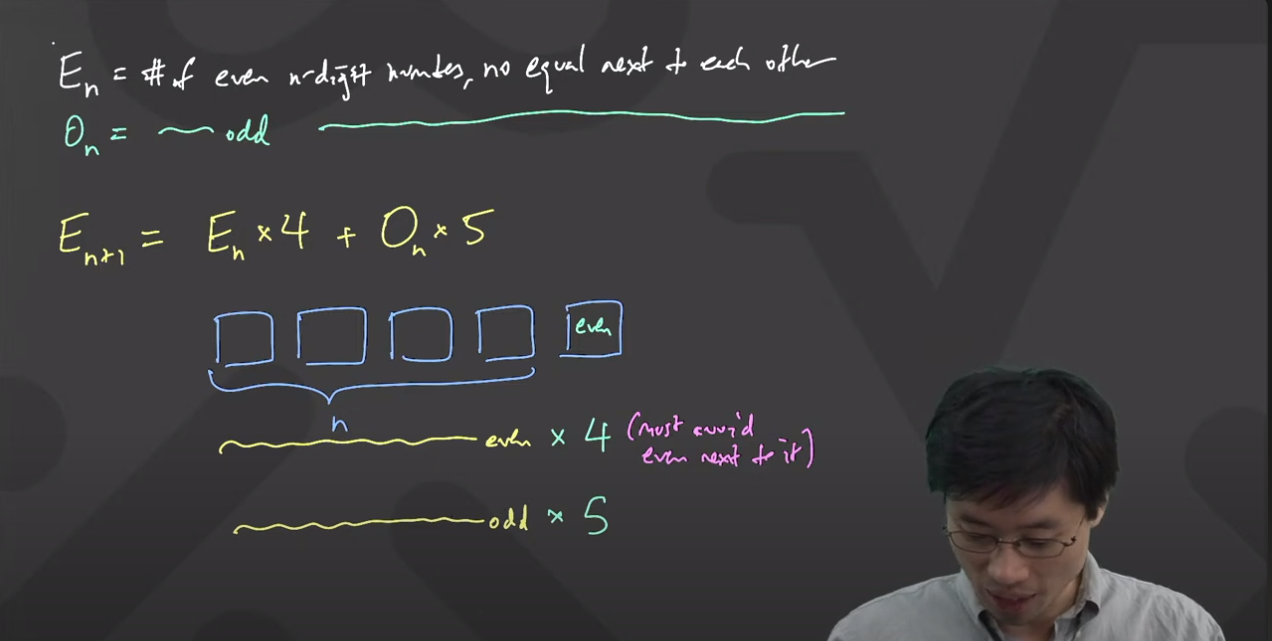 E_n = # of even n-digit numbers, no equal next to each other
O_n = ~ odd
E_{n+1} = E_n × 4 + O_n × 5
even
n
even × 4 (must avoid even next to it)
odd × 5